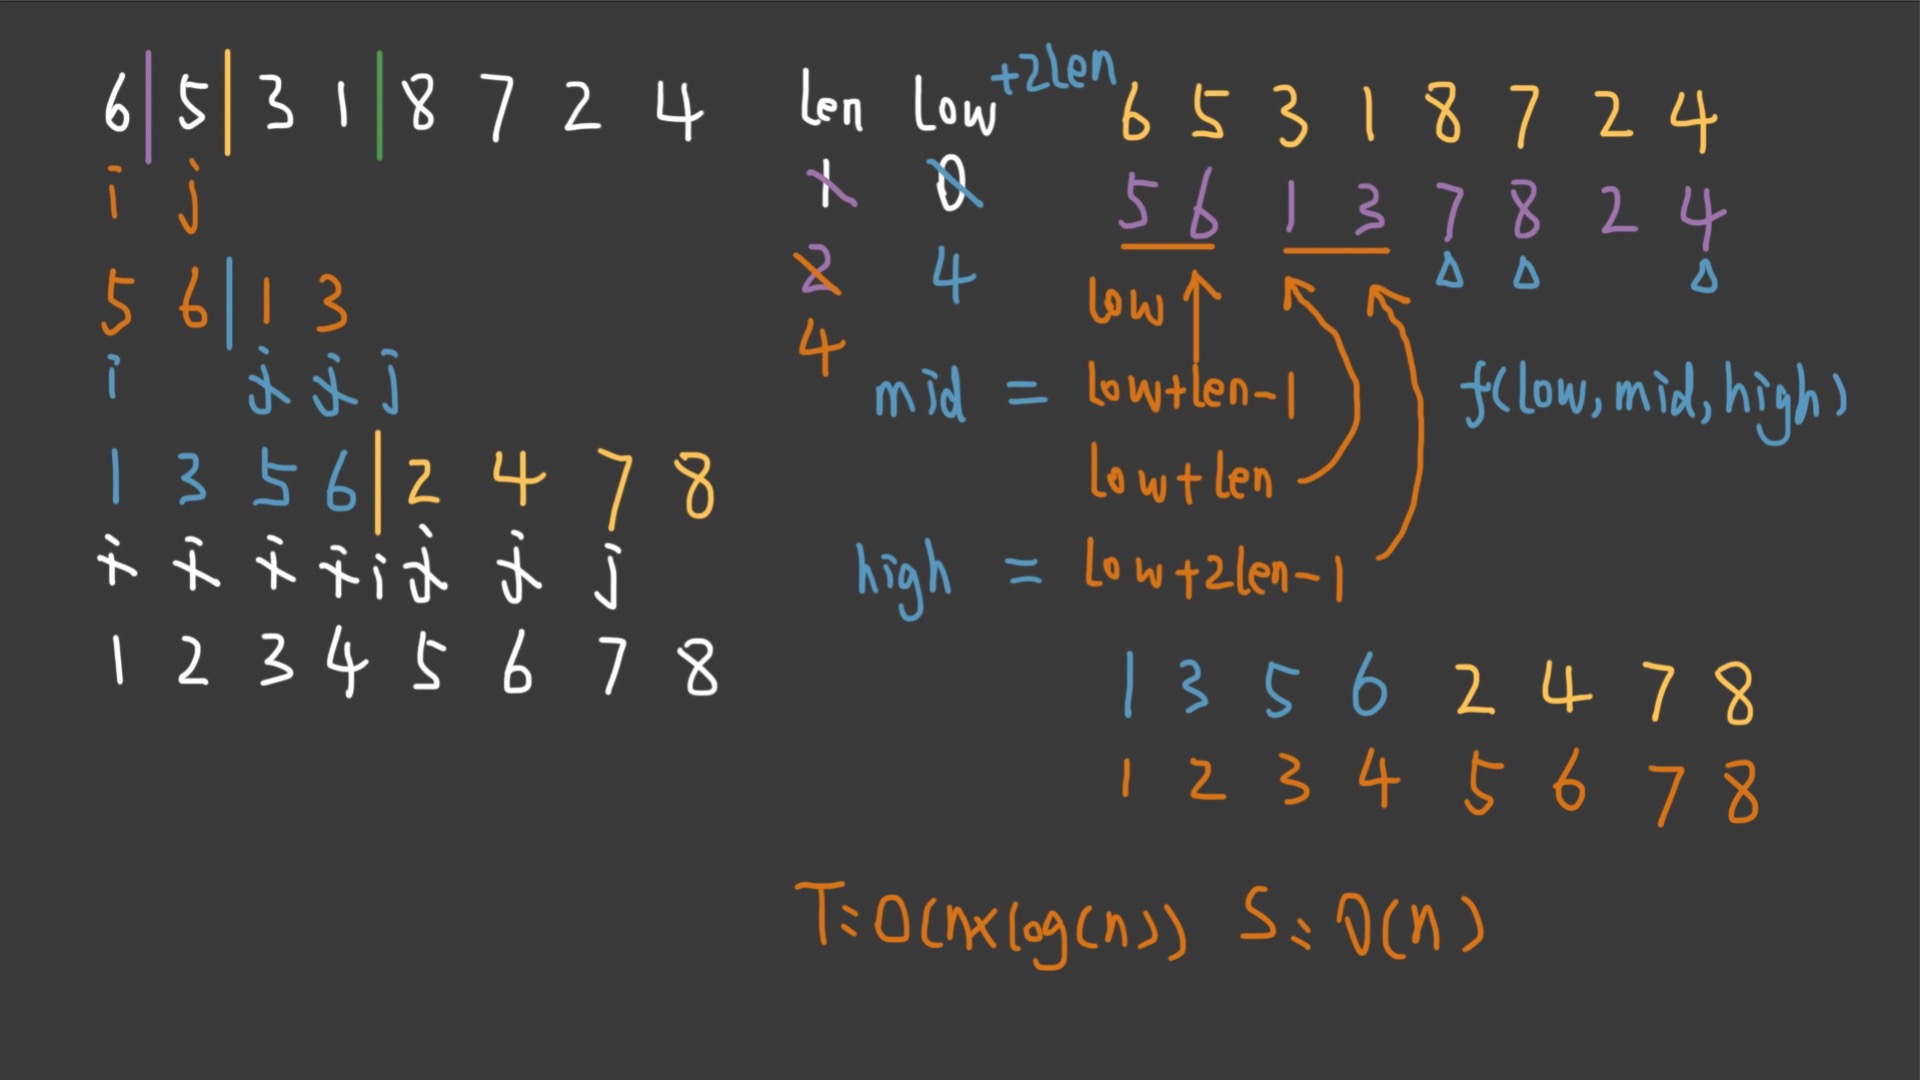 6 | 5 | 3 1 | 8 7 2 4
i j
5 6 | 1 3
i j j j
1 3 5 6 | 2 4 7 8
i i i i i j j j
1 2 3 4 5 6 7 8
len low +2len
1 0
2 4
4
6 5 3 1 8 7 2 4
5 6 1 3 7 8 2 4
Δ Δ Δ
low
mid = low+len-1
f(low,mid,high)
low+len
high = low+2len-1
1 3 5 6 2 4 7 8
1 2 3 4 5 6 7 8
T: O(n×log(n)) S: O(n)